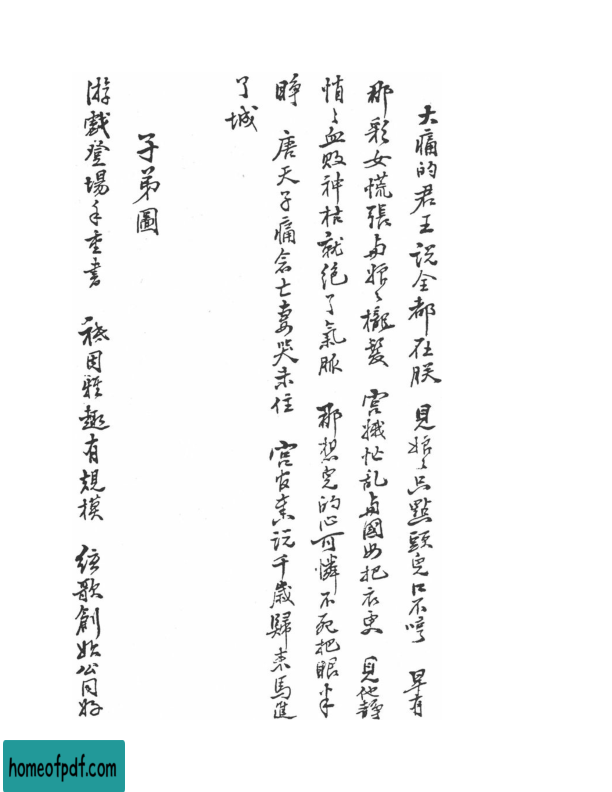 大痛的君王說全都在朕 見娘〻只點頭兒口不哼 早有
那彩女慌張與娘〻攏髮 宮娥忙亂與國母把衣更 見他靜
悄〻血敗神枯就絕了氣脈 那想兒的心可憐不死把眼半
睜 唐天子痛念亡妻哭未住 宮官奏說千歲歸來馬進
了城
子弟圖
游戲登場手壹書 祗因雅趣有規模 絃歌創始公同好
homeofpdf.com